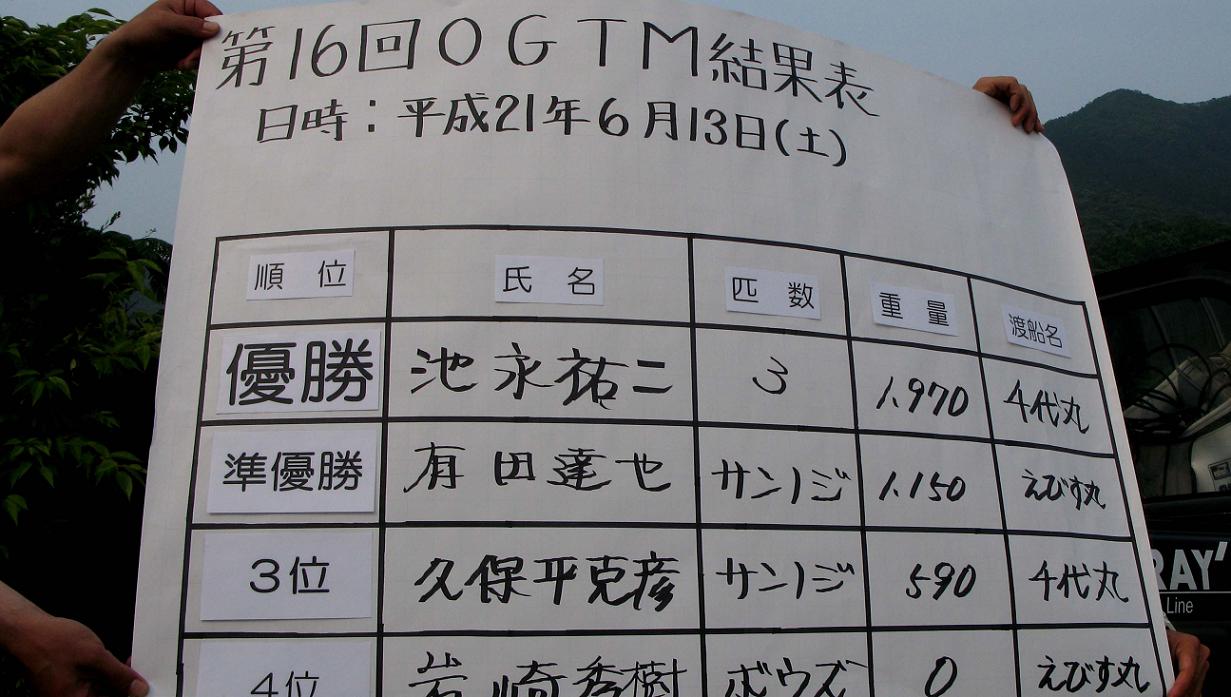 第16回OGTM結果表
日時：平成21年6月13日(土)
順位 氏名 匹数 重量 渡船名
優勝 池永祐二 3 1.970 千代丸
準優勝 有田達也 サンノジ 1.150 えびす丸
3位 久保平克彦 サンノジ 590 千代丸
4位 岩崎秀樹 ボウズ 0 えびす丸
RAY'
Line